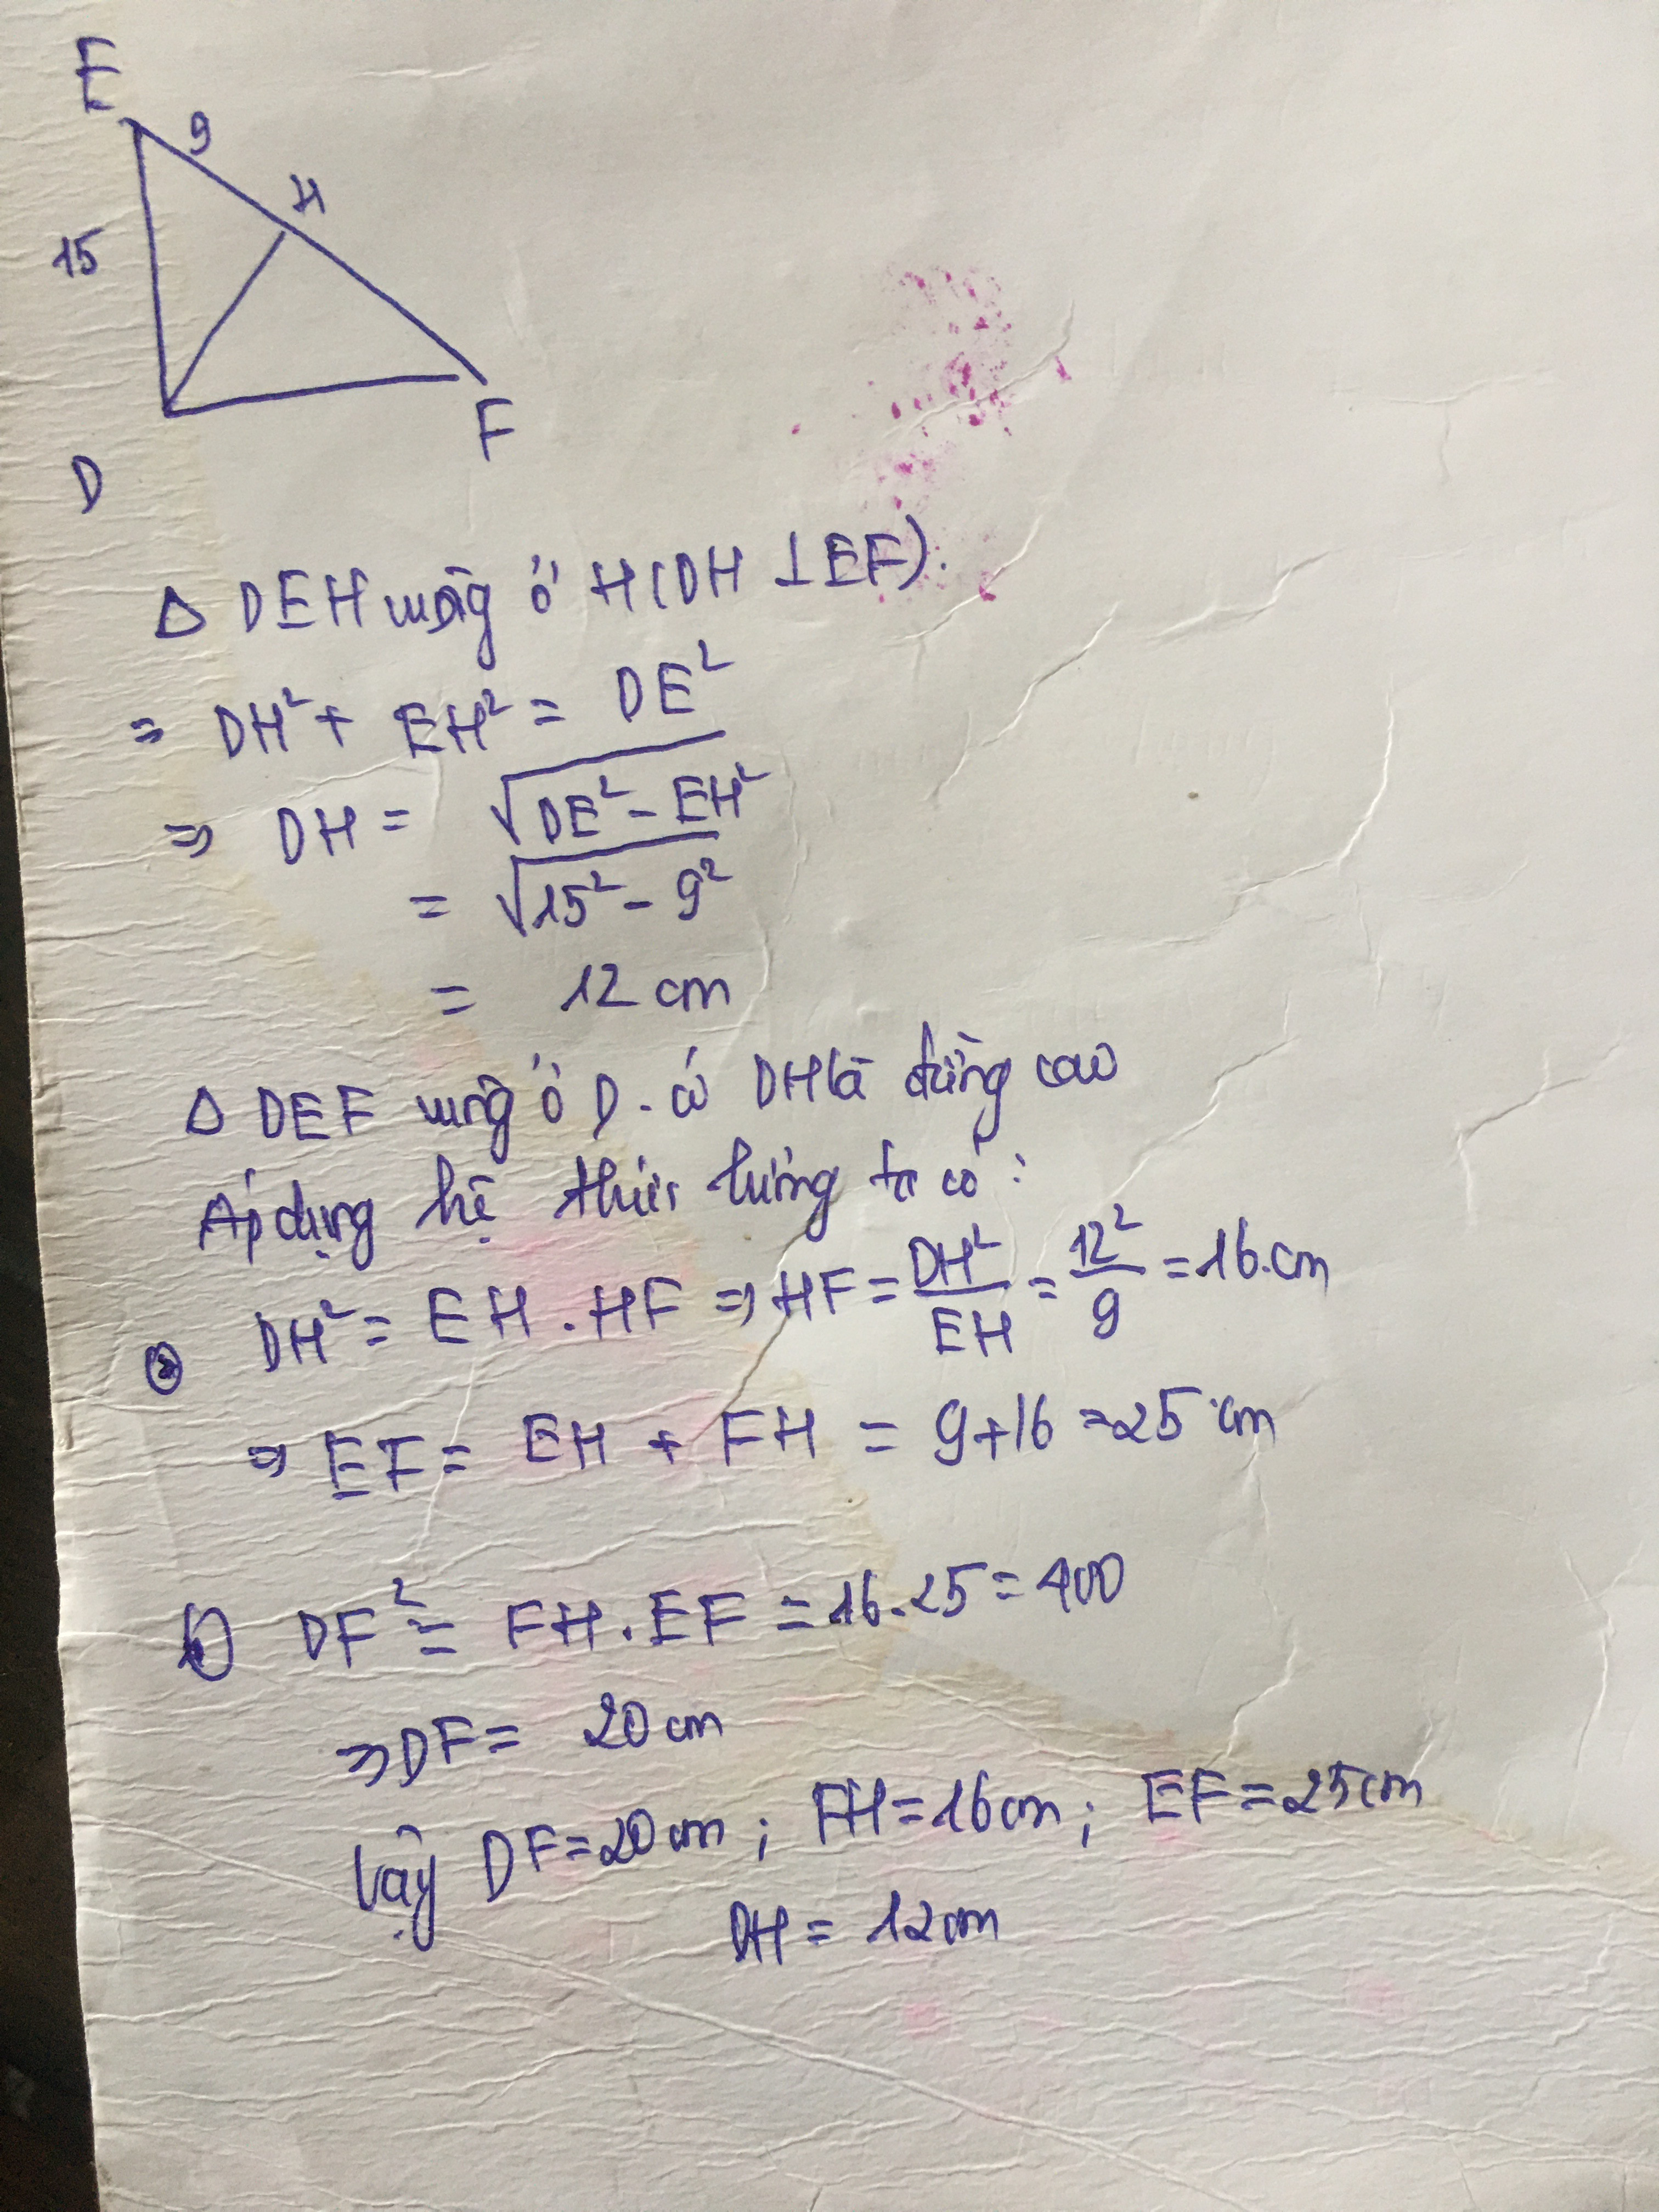 E
9
H
15
F
D
Δ DEH vuông ở H (DH ⊥ EF).
⇒ DH² + EH² = DE²
⇒ DH = √(DE² - EH²)
= √(15² - 9²)
= 12 cm
Δ DEF vuông ở D. có DH là đường cao
Áp dụng hệ thức lượng ta có:
DH² = EH . HF ⇒ HF = DH²/EH = 12²/9 = 16 cm
⇒ EF = EH + FH = 9 + 16 = 25 cm
b) DF² = FH . EF = 16 . 25 = 400
⇒ DF = 20 cm
Vậy DF = 20 cm ; FH = 16 cm ; EF = 25 cm
DH = 12 cm